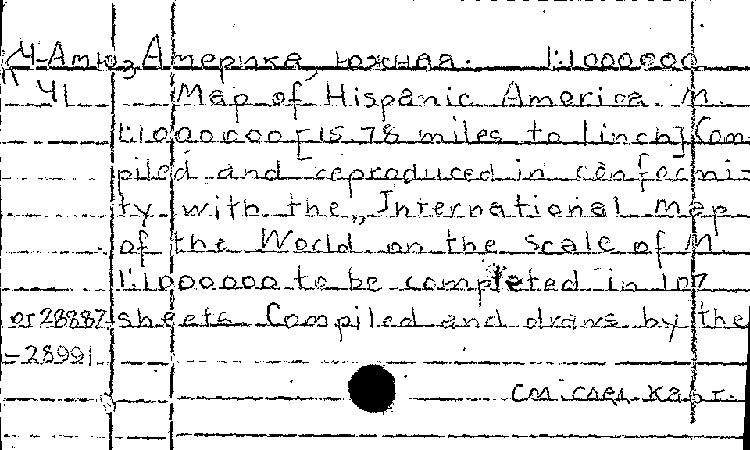 Ч-Амюз, Америка, южная. 1:1000000
Ч1 Map of Hispanic America. M.
1:1000000 [15.78 miles to 1 inch] Com
piled and reproduced in conformi-
ty with the „International map
of the World on the scale of M
1:1000000 to be completed in 107
ог28887 sheets. Compiled and draws by the
-28991
См. след. карт.